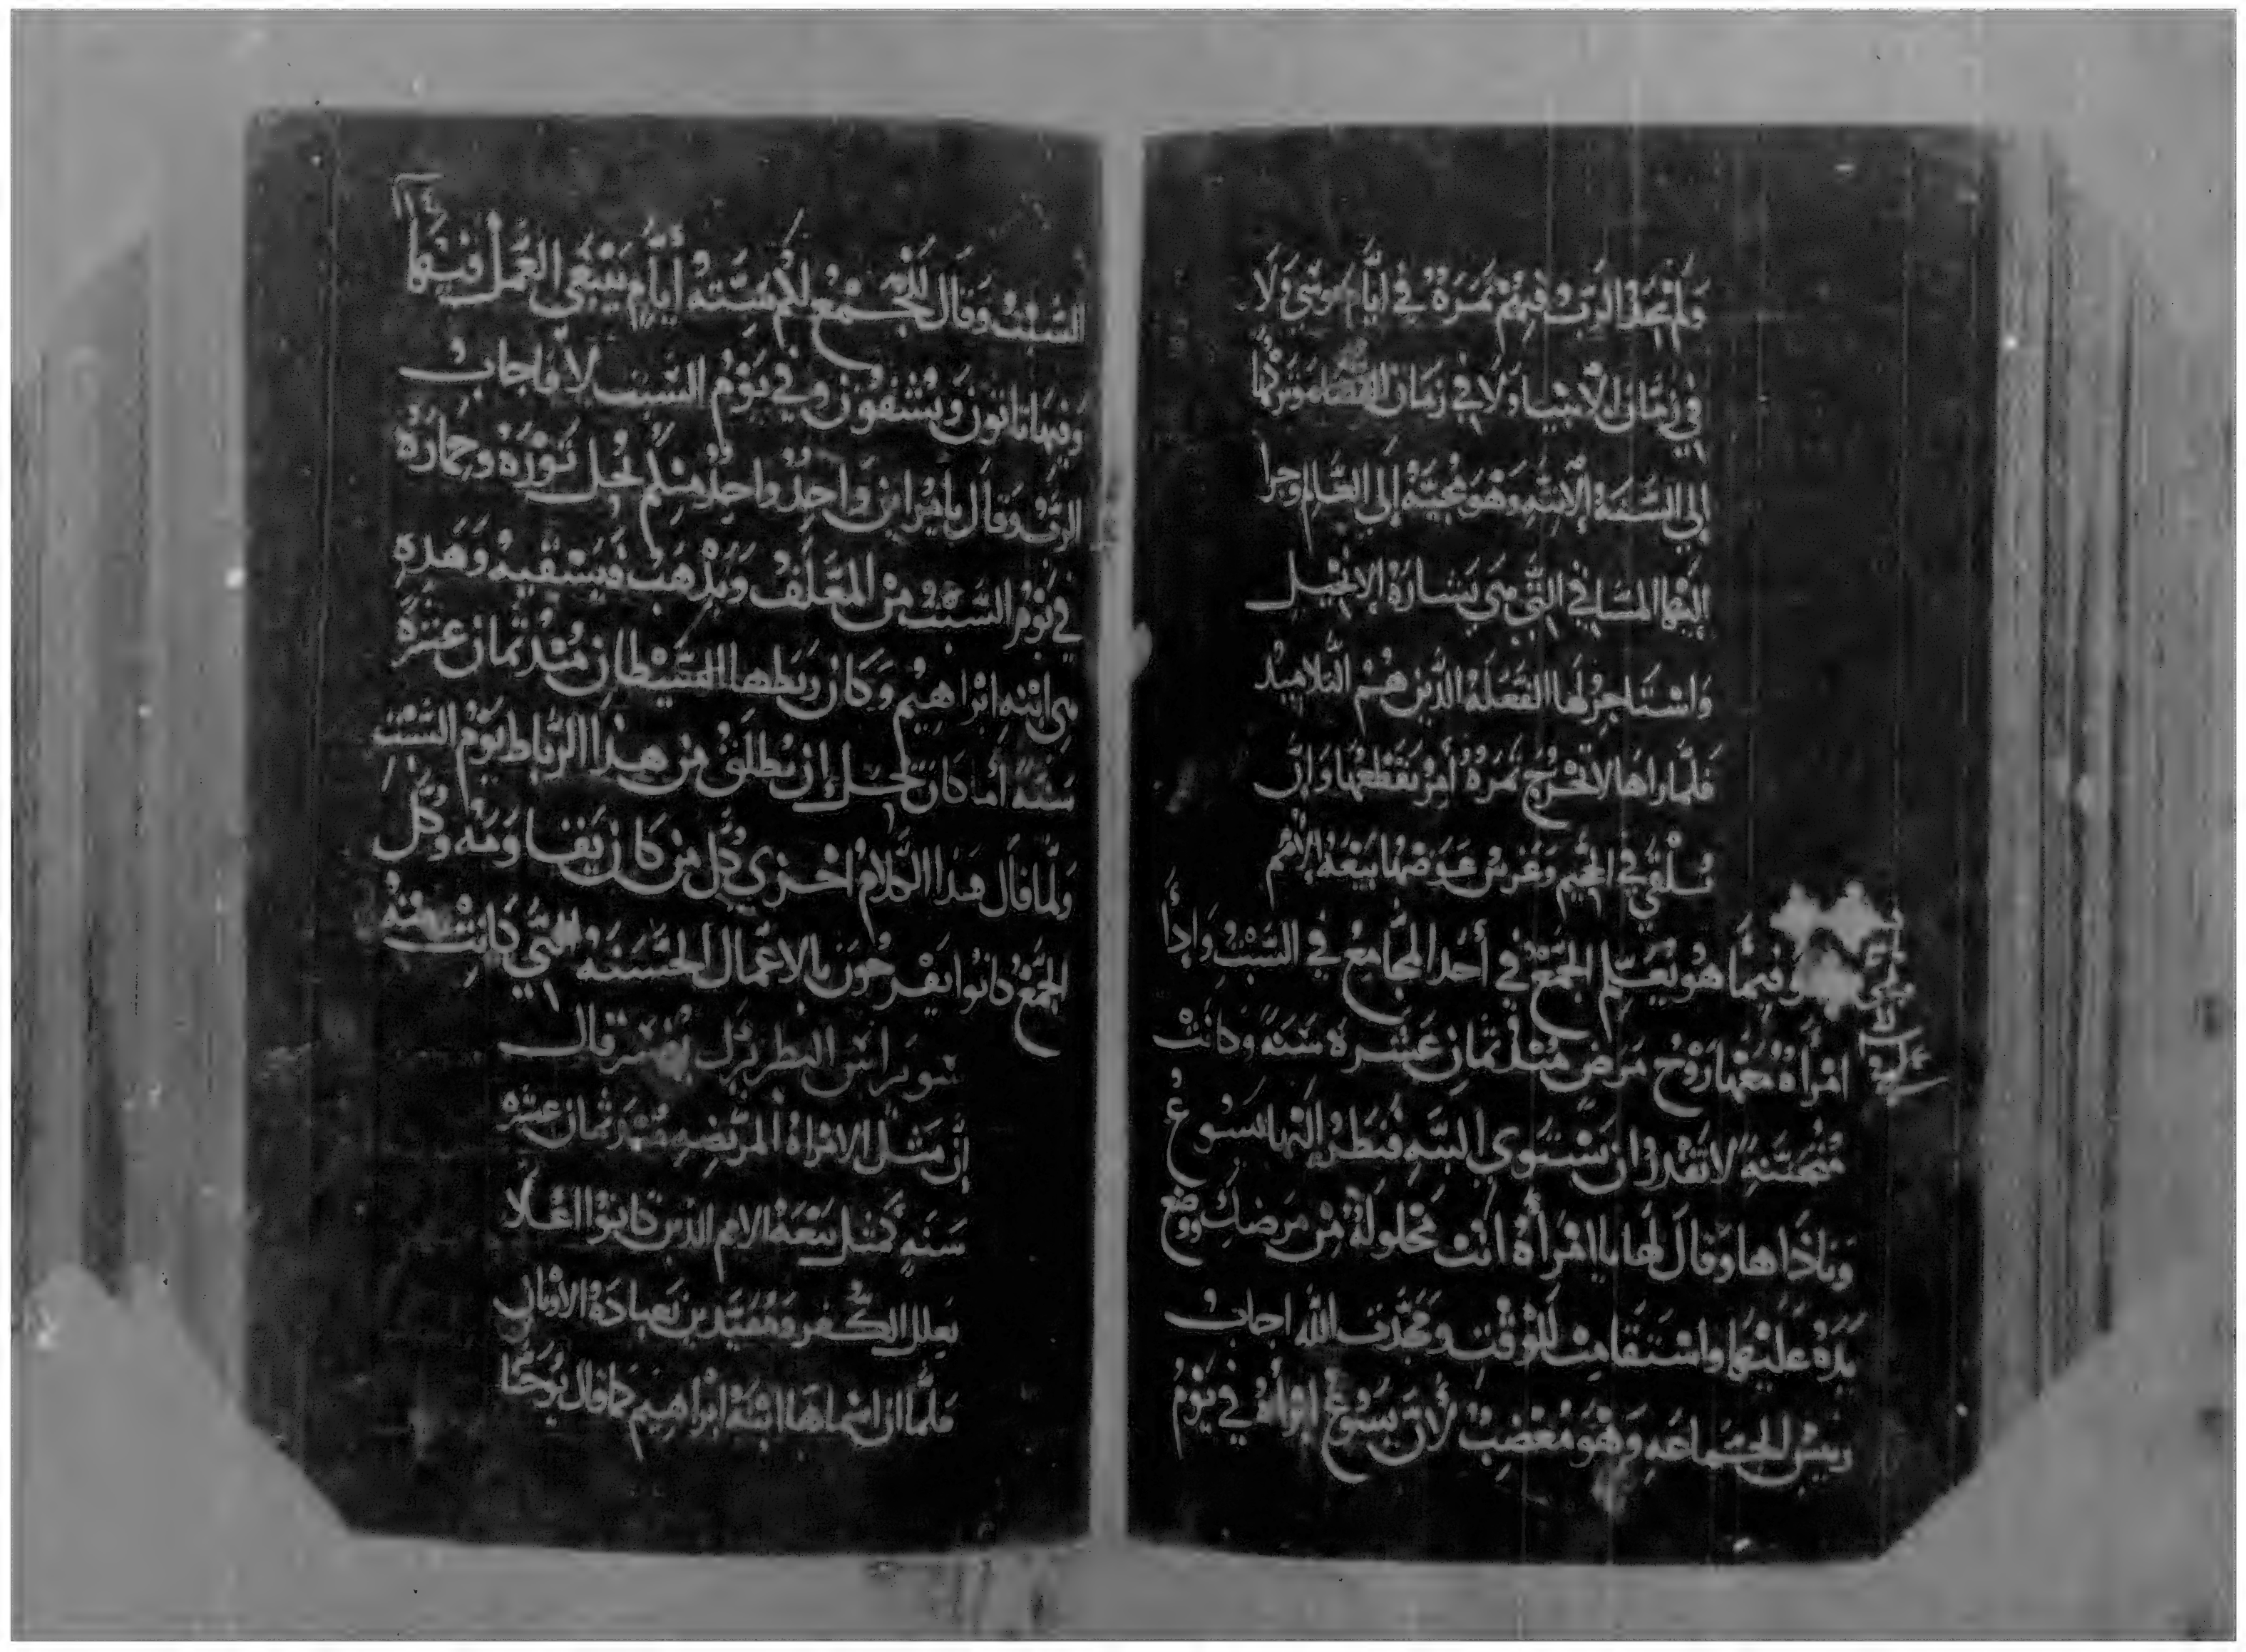 ولم يجد الرب فيهم ثمرة في ايام موسى ولا
في زمان الأنبيا ولا في زمان القضاه وتركها
إلى السنة الاتيه وهو مجيئه إلى العالم وجرا
إليها المسا في التي هي بشارة الانجيل
واستاجر لها الفعله الذين هم التلاميد
فلما راها لا تخرج ثمرة أمر بقطعها وان
تلقى في الجحيم وغرس عوضها بيعة الأمم
وفيما هو يعلم الجمع في أحد المجامع في السبت وإذا
امرأة معها روح مرض مند ثمان عشرة سنة وكانت
منحنية لا تقدر ان تستوي البته فنظر إليها يسوع
وناداها وقال لها يا امرأة انت محلولة من مرضك ووضع
يده عليها واستقامت للوقت ومجدت الله اجاب
رييس الجماعه وهو مغضب لأن يسوع ابراه في يوم
١١٤
السبت وقال للجمع لكم سته أيام ينبغي العمل فيها
وفيها تاتون وتشفون وفي يوم السبت لا فاجاب
الرب وقال يا مرايين واحد واحد منكم يحل ثوره وحماره
في يوم السبت من المعلف ويدهب فيسقيه وهده
هي ابنه ابراهيم وكان ربطها الشيطان مند ثمان عشرة
سنة أما كان يحل ان تطلق من هدا الرباط يوم السبت
ولما قال هدا الكلام اخزي كل من كان يقاومه وكل
الجمع كانوا يفرحون بالاعمال الحسنه التي كانت منه
سويراس البطريرك يفسر قال
إن مثل الامراة المريضه مند ثمان عشره
سنه كمثل بيعة الامم الدين كانوا اعلا
بعلل الكفر ومقيدين بعبادة الاوثان
فلما ان اسماها ابنة ابراهيم كما قال يوحنا